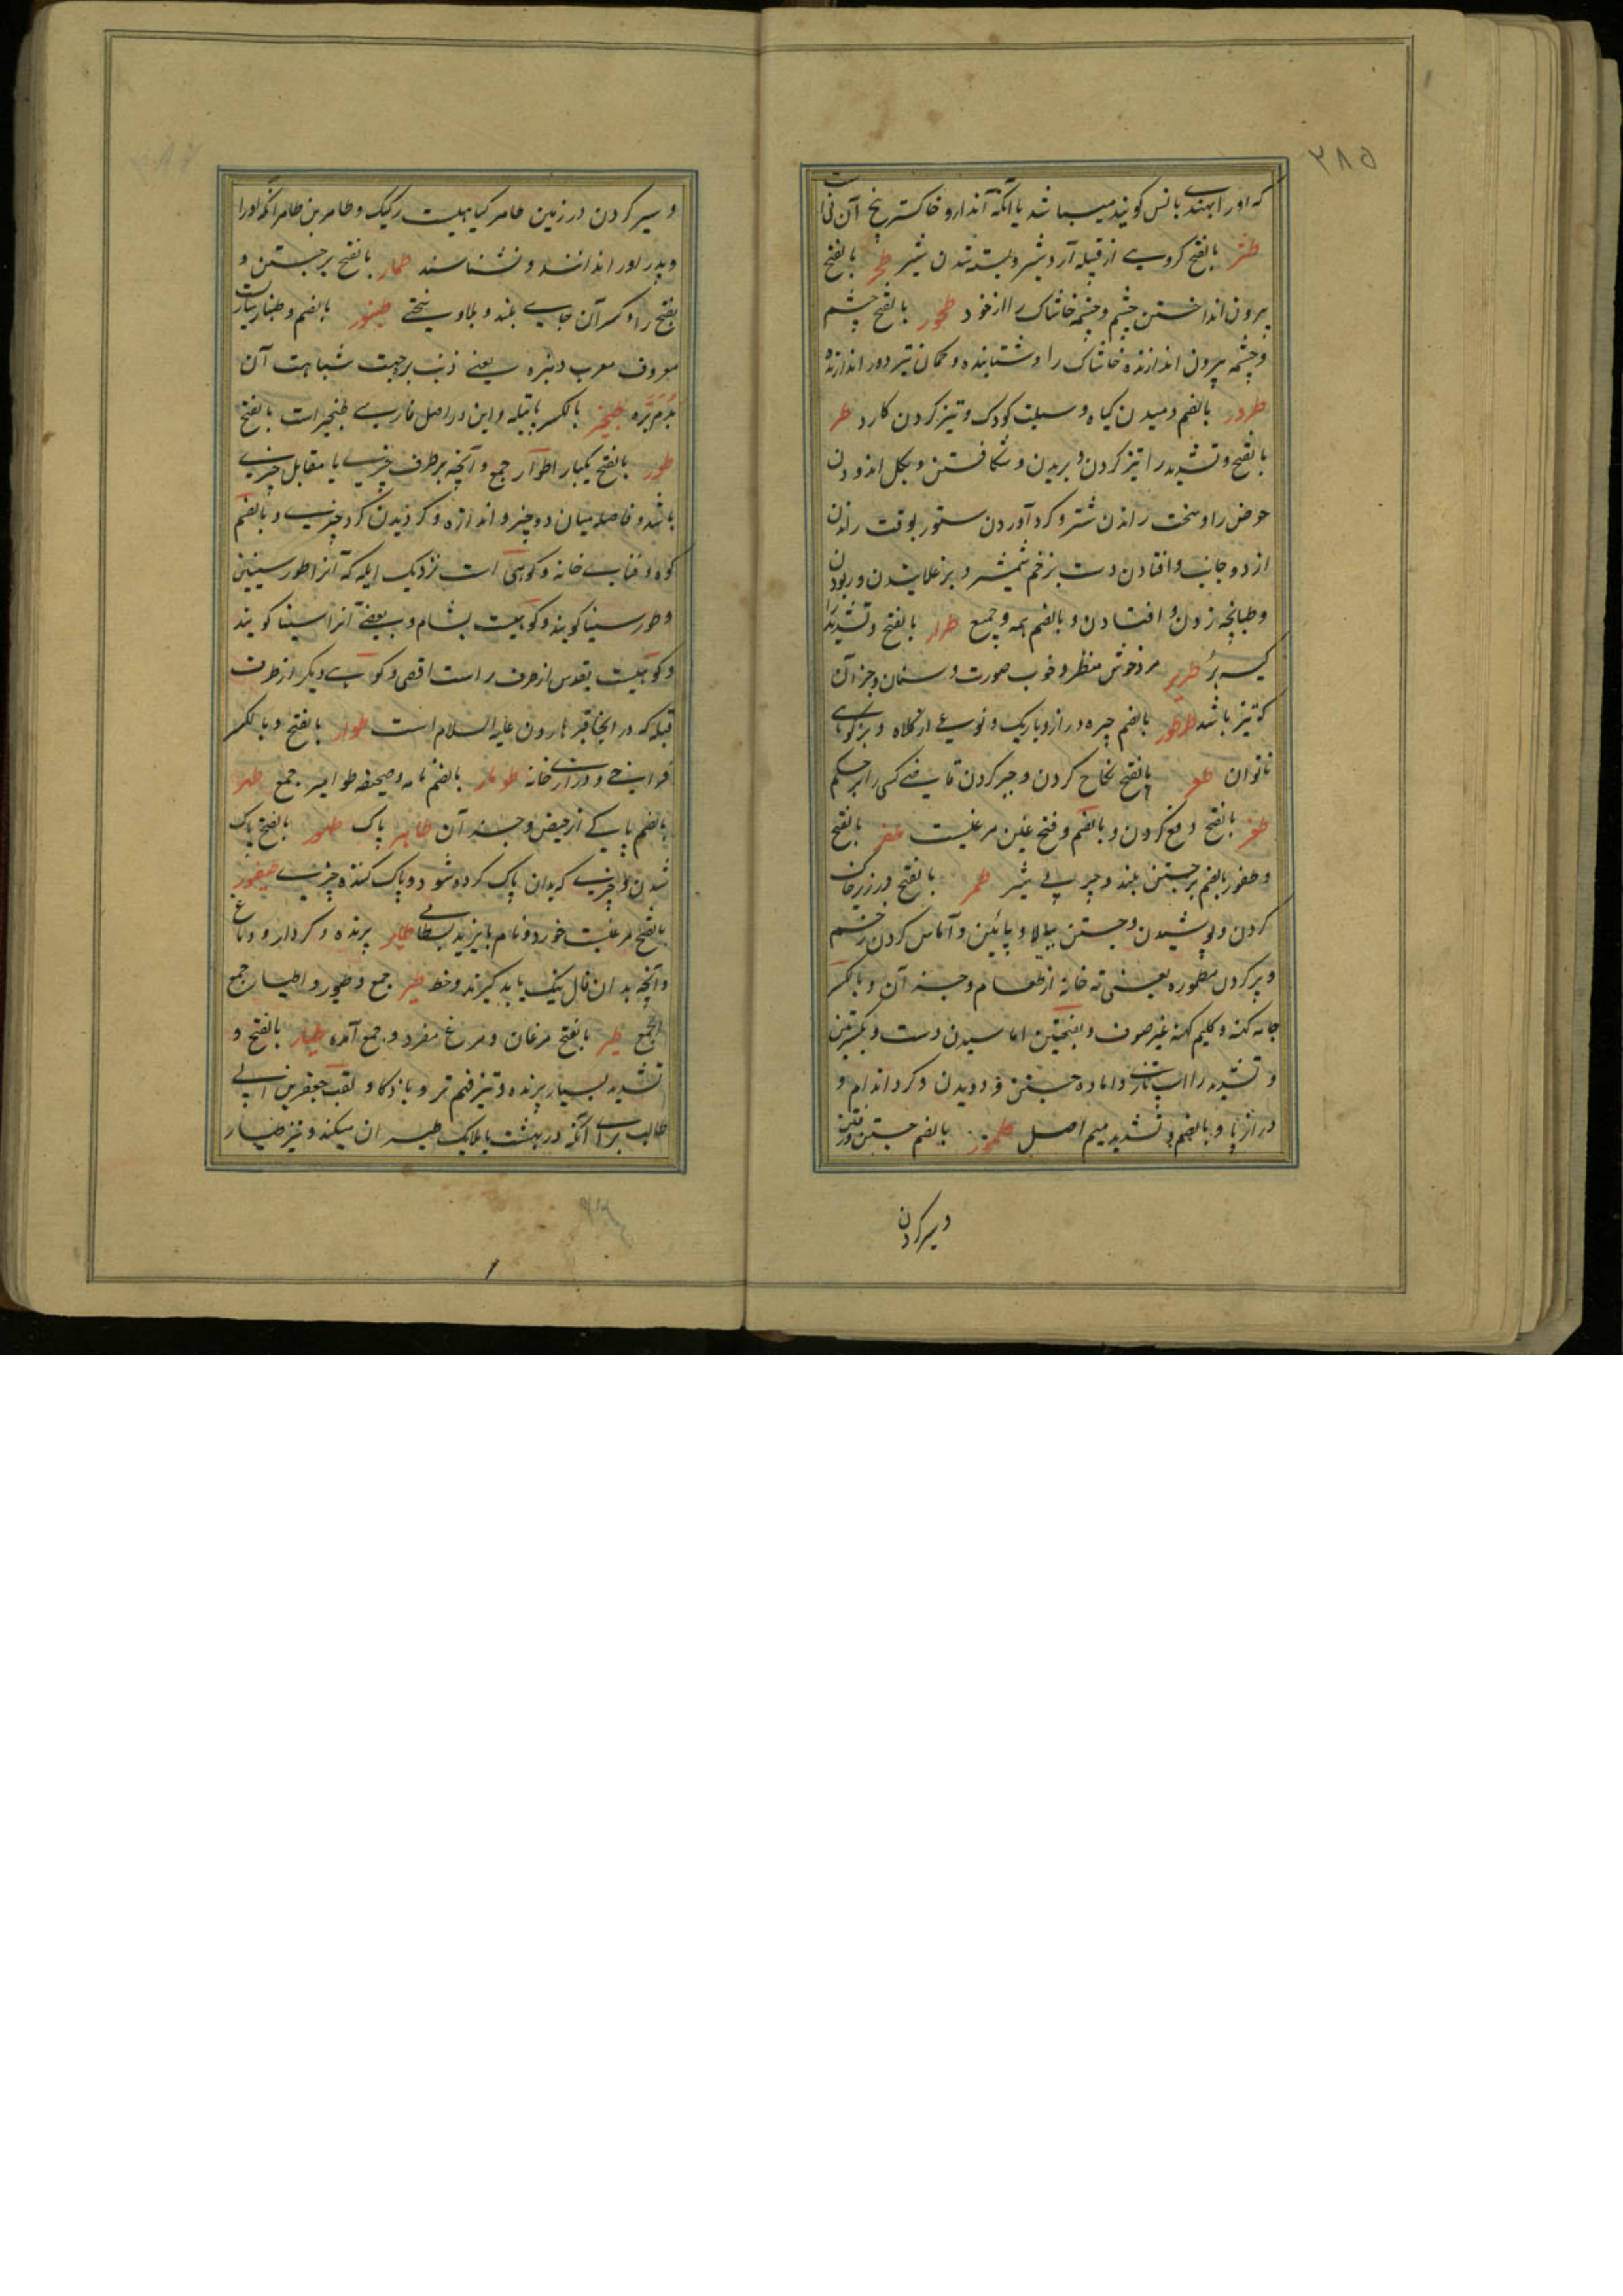 ۲۸۵
که او را بهندی بانس کویند میباشد یا آنکه آندارو خاکستر بیخ آن نی است
طثر بالفتح کروهی از قبیله آرد و شیر و بسته شدن شیر طحر بالفتح
بیرون انداختن چشم و چشمه خاشاک را از خود طحور بالفتح چشم
و چشمه بیرون اندازنده خاشاک را و شتابنده و کمان تیر دور اندازنده
طرور بالضم دمیدن کیاه و سبلت کودک و تیز کردن کارد طر
بالفتح و تشدید را تیز کردن و بریدن و شکافتن و بکل اندودن
حوض را و سخت راندن شتر و کرد آوردن ستور بوقت راندن
از دو جانب و افتادن دست بزخم شمشیر و بر غلانیدن و ربودن
و طپانچه زدن و افتادن و بالضم همه و جمیع طرار بالفتح و تشدید را
کیسه بر طریر مرد خوش منظر و خوب صورت و سنان و جز آن
که تیز باشد طرطور بالضم چیزه دراز و باریک و نوعی از کلاه و بزکوهی
ناتوان طعر بالفتح نکاح کردن و جبر کردن قاضی کسی را بر حکم
طغر بالفتح دفع کردن و بالضم و فتح غین مرغیست طفر بالفتح
و طفور بالضم برجستن بلند و چربی شیر طمر بالفتح در زیر خاک
کردن و پوشیدن و جستن ببالا و پائین و آماس کردن زخم
و پر کردن مطموره یعنی ته خانه از طعام و جز آن و بالکسر
جامه کهنه و کلیم کهنه غیر صوف و بفتحتین اماسیدن دست و بکسرتین
و تشدید را اسپ تازی و اماده جستن و دویدن و کرد اندام و
دراز پا و بالضم و تشدید میم اصل طمور بالضم جستن و رفتن
و سیر کردن
و سیر کردن در زمین طامر کیاهیست رکیک و طامر بن طامر آنکه او را
و پدر او را ندانند و نشناسند طمار بالفتح برجستن و
بفتح را و کسر آن جای بلند و بلا و سختی طنبور بالضم و طنبار سازیست
معروف معرب دنبره یعنی ذنب بره جهت شباهت آن
بدم بره طنجیر بالکسر پاتیله و این در اصل فارسی طنجیر است بالفتح
طور بالفتح یکبار اطوار جمع و آنچه بر طرف چیزی یا مقابل چیزی
باشد و فاصله میان دو چیز و اندازه و کردیدن کرد چیزی و بالضم
کوه و فنای خانه و کوهی است نزدیک ایله که آنرا طور سینین
و طور سینا کویند و کوهیست بشام و بعضی آنرا سینا کویند
و کوهیست بقدس از طرف راست اقصی و کوهی دیکر از طرف
قبله که در آنجا قبر هارون علیه السلام است طوار بالفتح و بالکسر
فراخی و درازی خانه طومار بالضم نامه و صحیفه طوامیر جمع طهر
بالضم پاکی از حیض و جز آن طاهر پاک طهور بالفتح پاک
شدن و چیزی که بدان پاک کرده شود و پاک کننده چیزی طیفور
بالفتح مرغیست خورد و نام بایزید بسطامی طایر پرنده و کردار و دماغ
و آنچه بدان فال نیک یا بد کیرند و خط طیر جمع و طیور و اطیار جمع
الجمع طیر بالفتح مرغان و مرغ مفرد و جمع آمده طیار بالفتح و
تشدید بسیار پرنده و تیز فهم تر و با ذکا و لقب جعفر بن ابی
طالب برای آنکه در بهشت با ملایک طیران میکند و نیز طیار